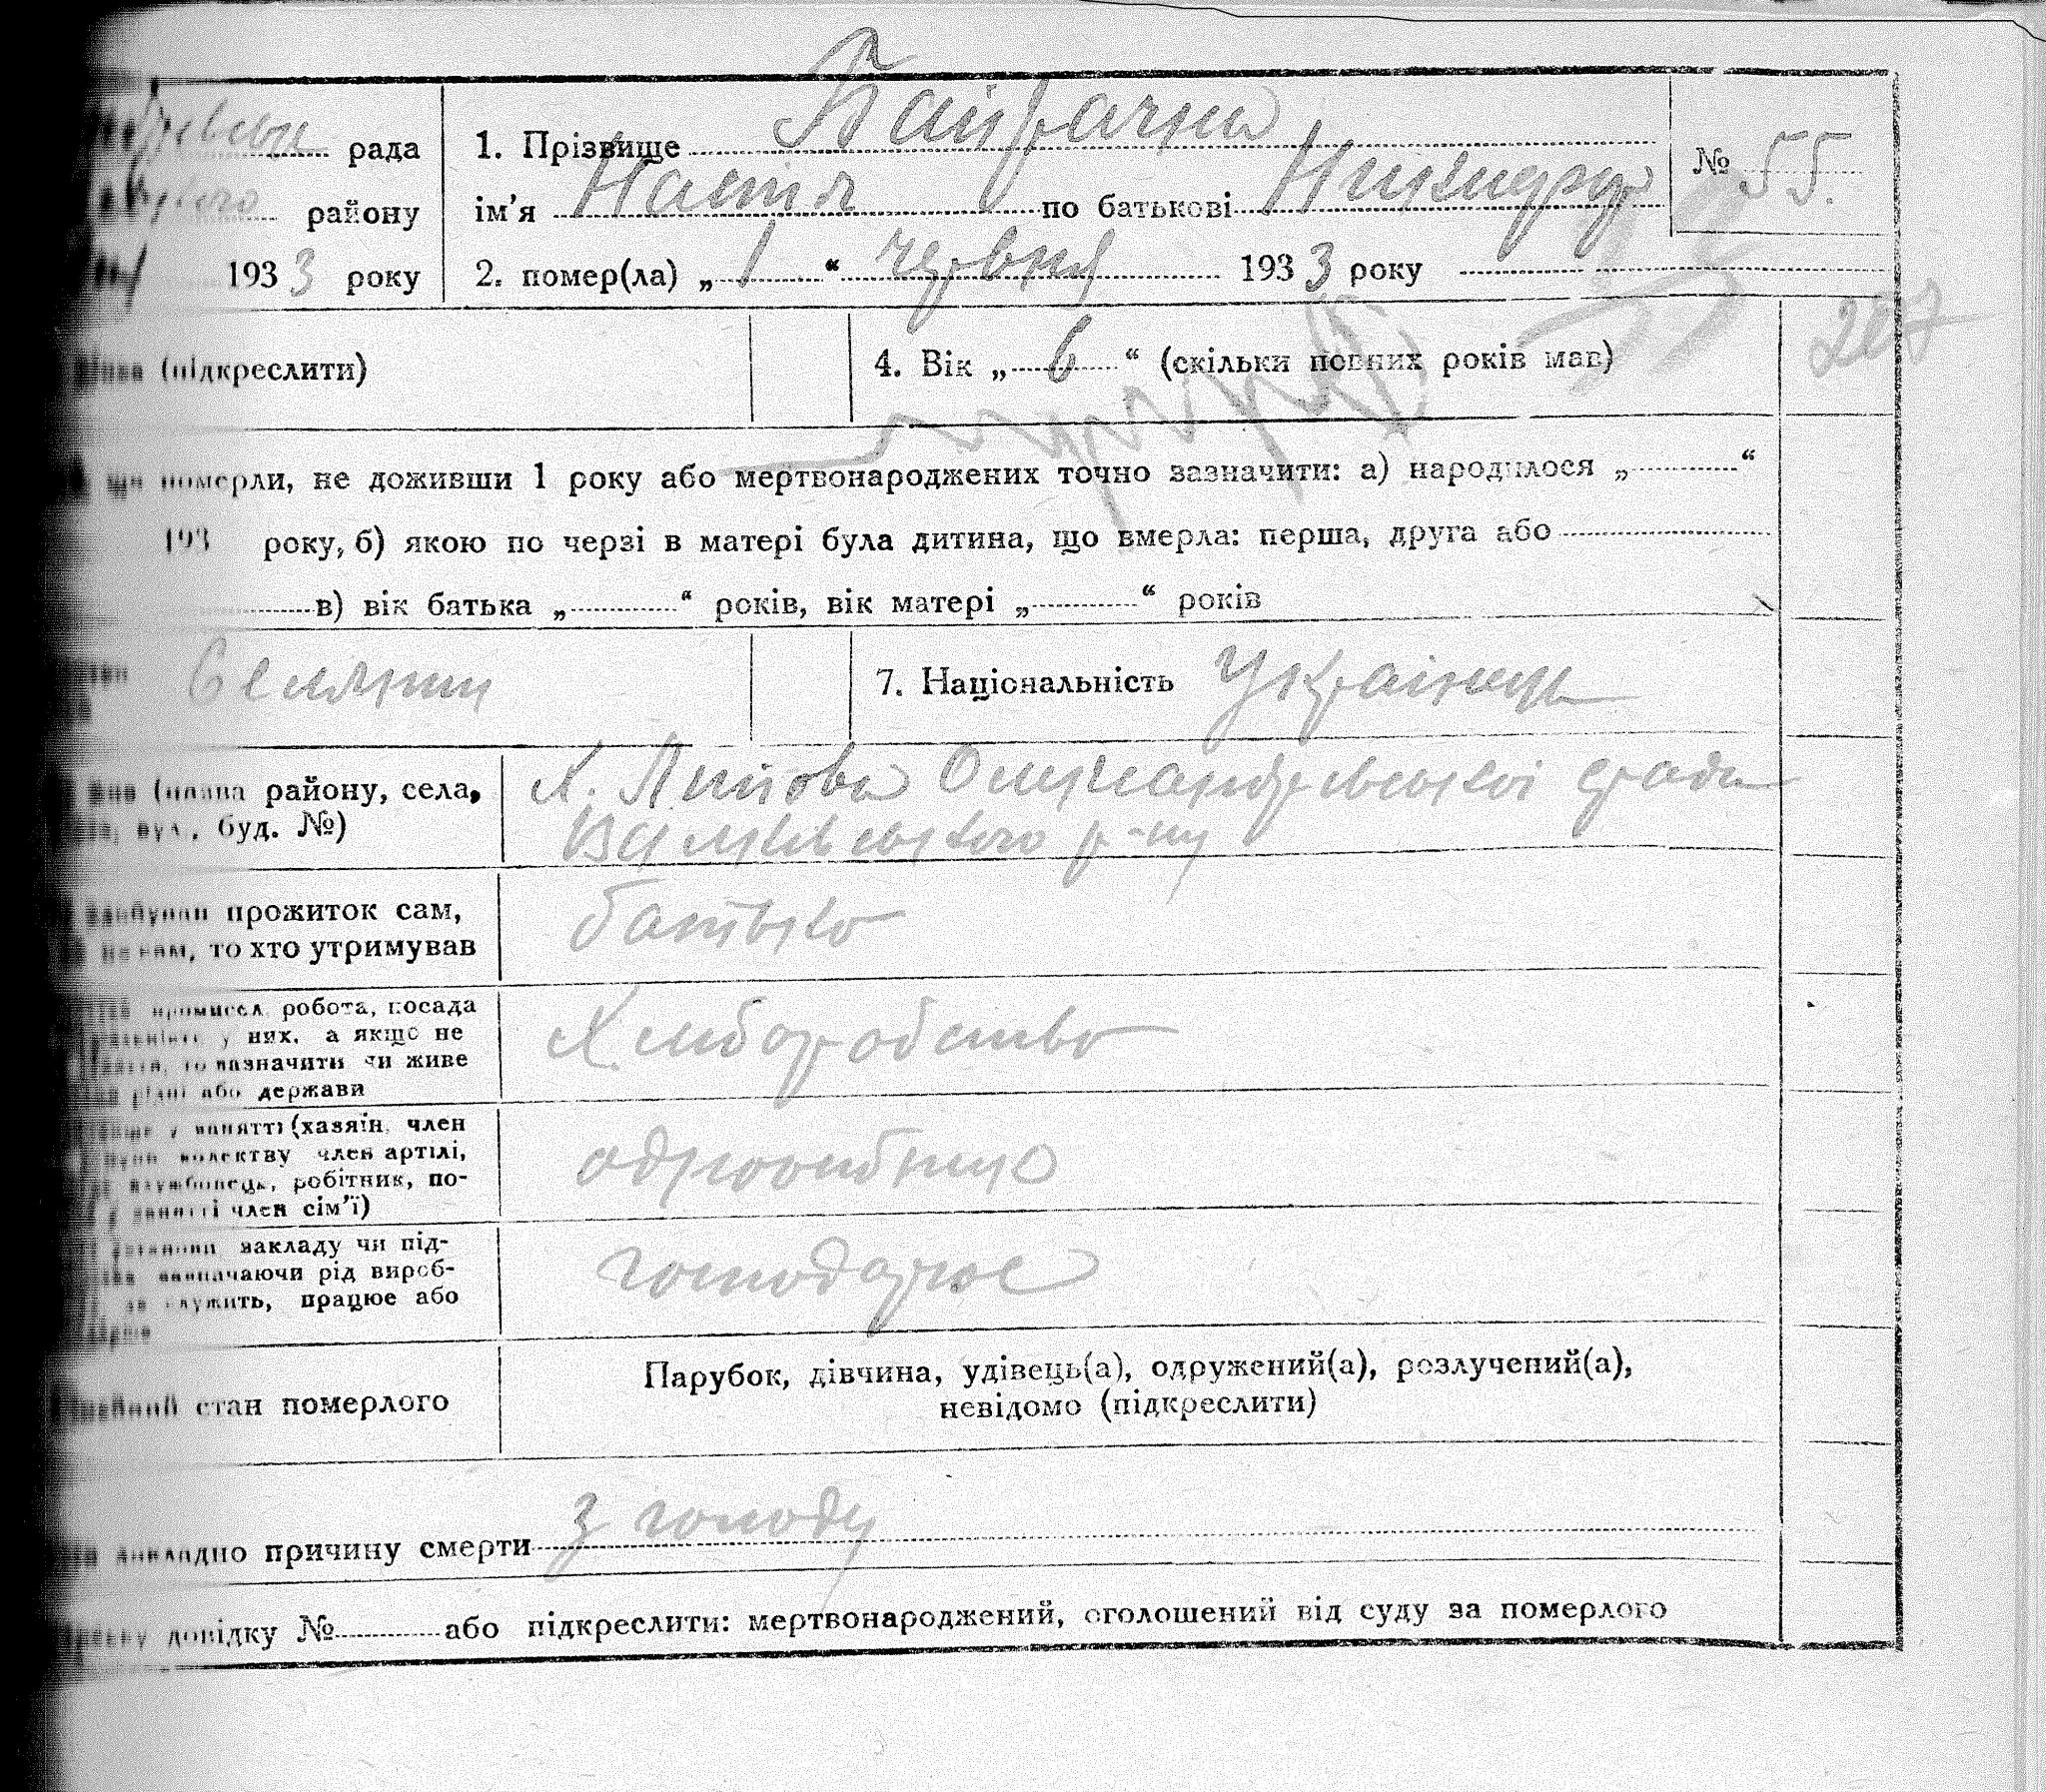 рада
району
1933 року
1. Прізвище
№ 55.
ім'я Настя по батькові
2. помер(ла) „ 1 “ червня 1933 року
(підкреслити)
4. Вік „ 6 “ (скільки повних років мав)
207
що померли, не доживши 1 року або мертвонароджених точно зазначити: а) народилося „ “
193 року, б) якою по черзі в матері була дитина, що вмерла: перша, друга або
в) вік батька „ “ років, вік матері „ “ років
Селянин
7. Національність Українець
(назва району, села,
вул., буд. №)
Х. Олександрівської ради
р-ну
прожиток сам,
не сам, то хто утримував
батько
промисел, робота, посада
у них, а якщо не
то зазначити чи живе
рідні або держави
Хліборобство
у занятті (хазяїн, член
колективу член артілі,
службовець, робітник, по-
занятті член сім'ї)
одноосібно
закладу чи під-
зазначаючи рід вироб-
служить, працює або
господарює
стан померлого
Парубок, дівчина, удівець(а), одружений(а), розлучений(а),
невідомо (підкреслити)
докладно причину смерти з голоду
довідку № або підкреслити: мертвонароджений, оголошений від суду за померлого